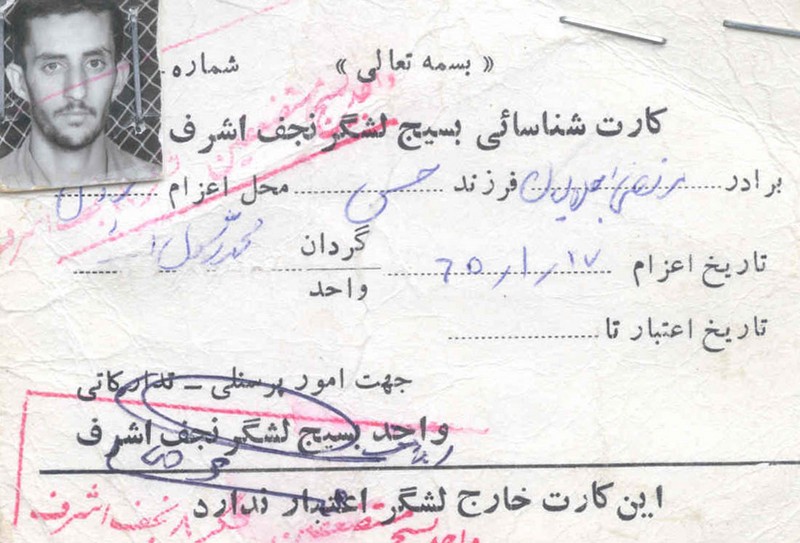 « بسمه تعالی » شماره
کارت شناسائی بسیج لشگر نجف اشرف
برادر مرتضی فرزند حسن محل اعزام
تاریخ اعزام ۶۵/۱/۱۷ گردان محمد رسول الله
واحد
تاریخ اعتبار تا
جهت امور پرسنلی ــ تدارکاتی
واحد بسیج لشگر نجف اشرف
این کارت خارج لشگر اعتبار ندارد